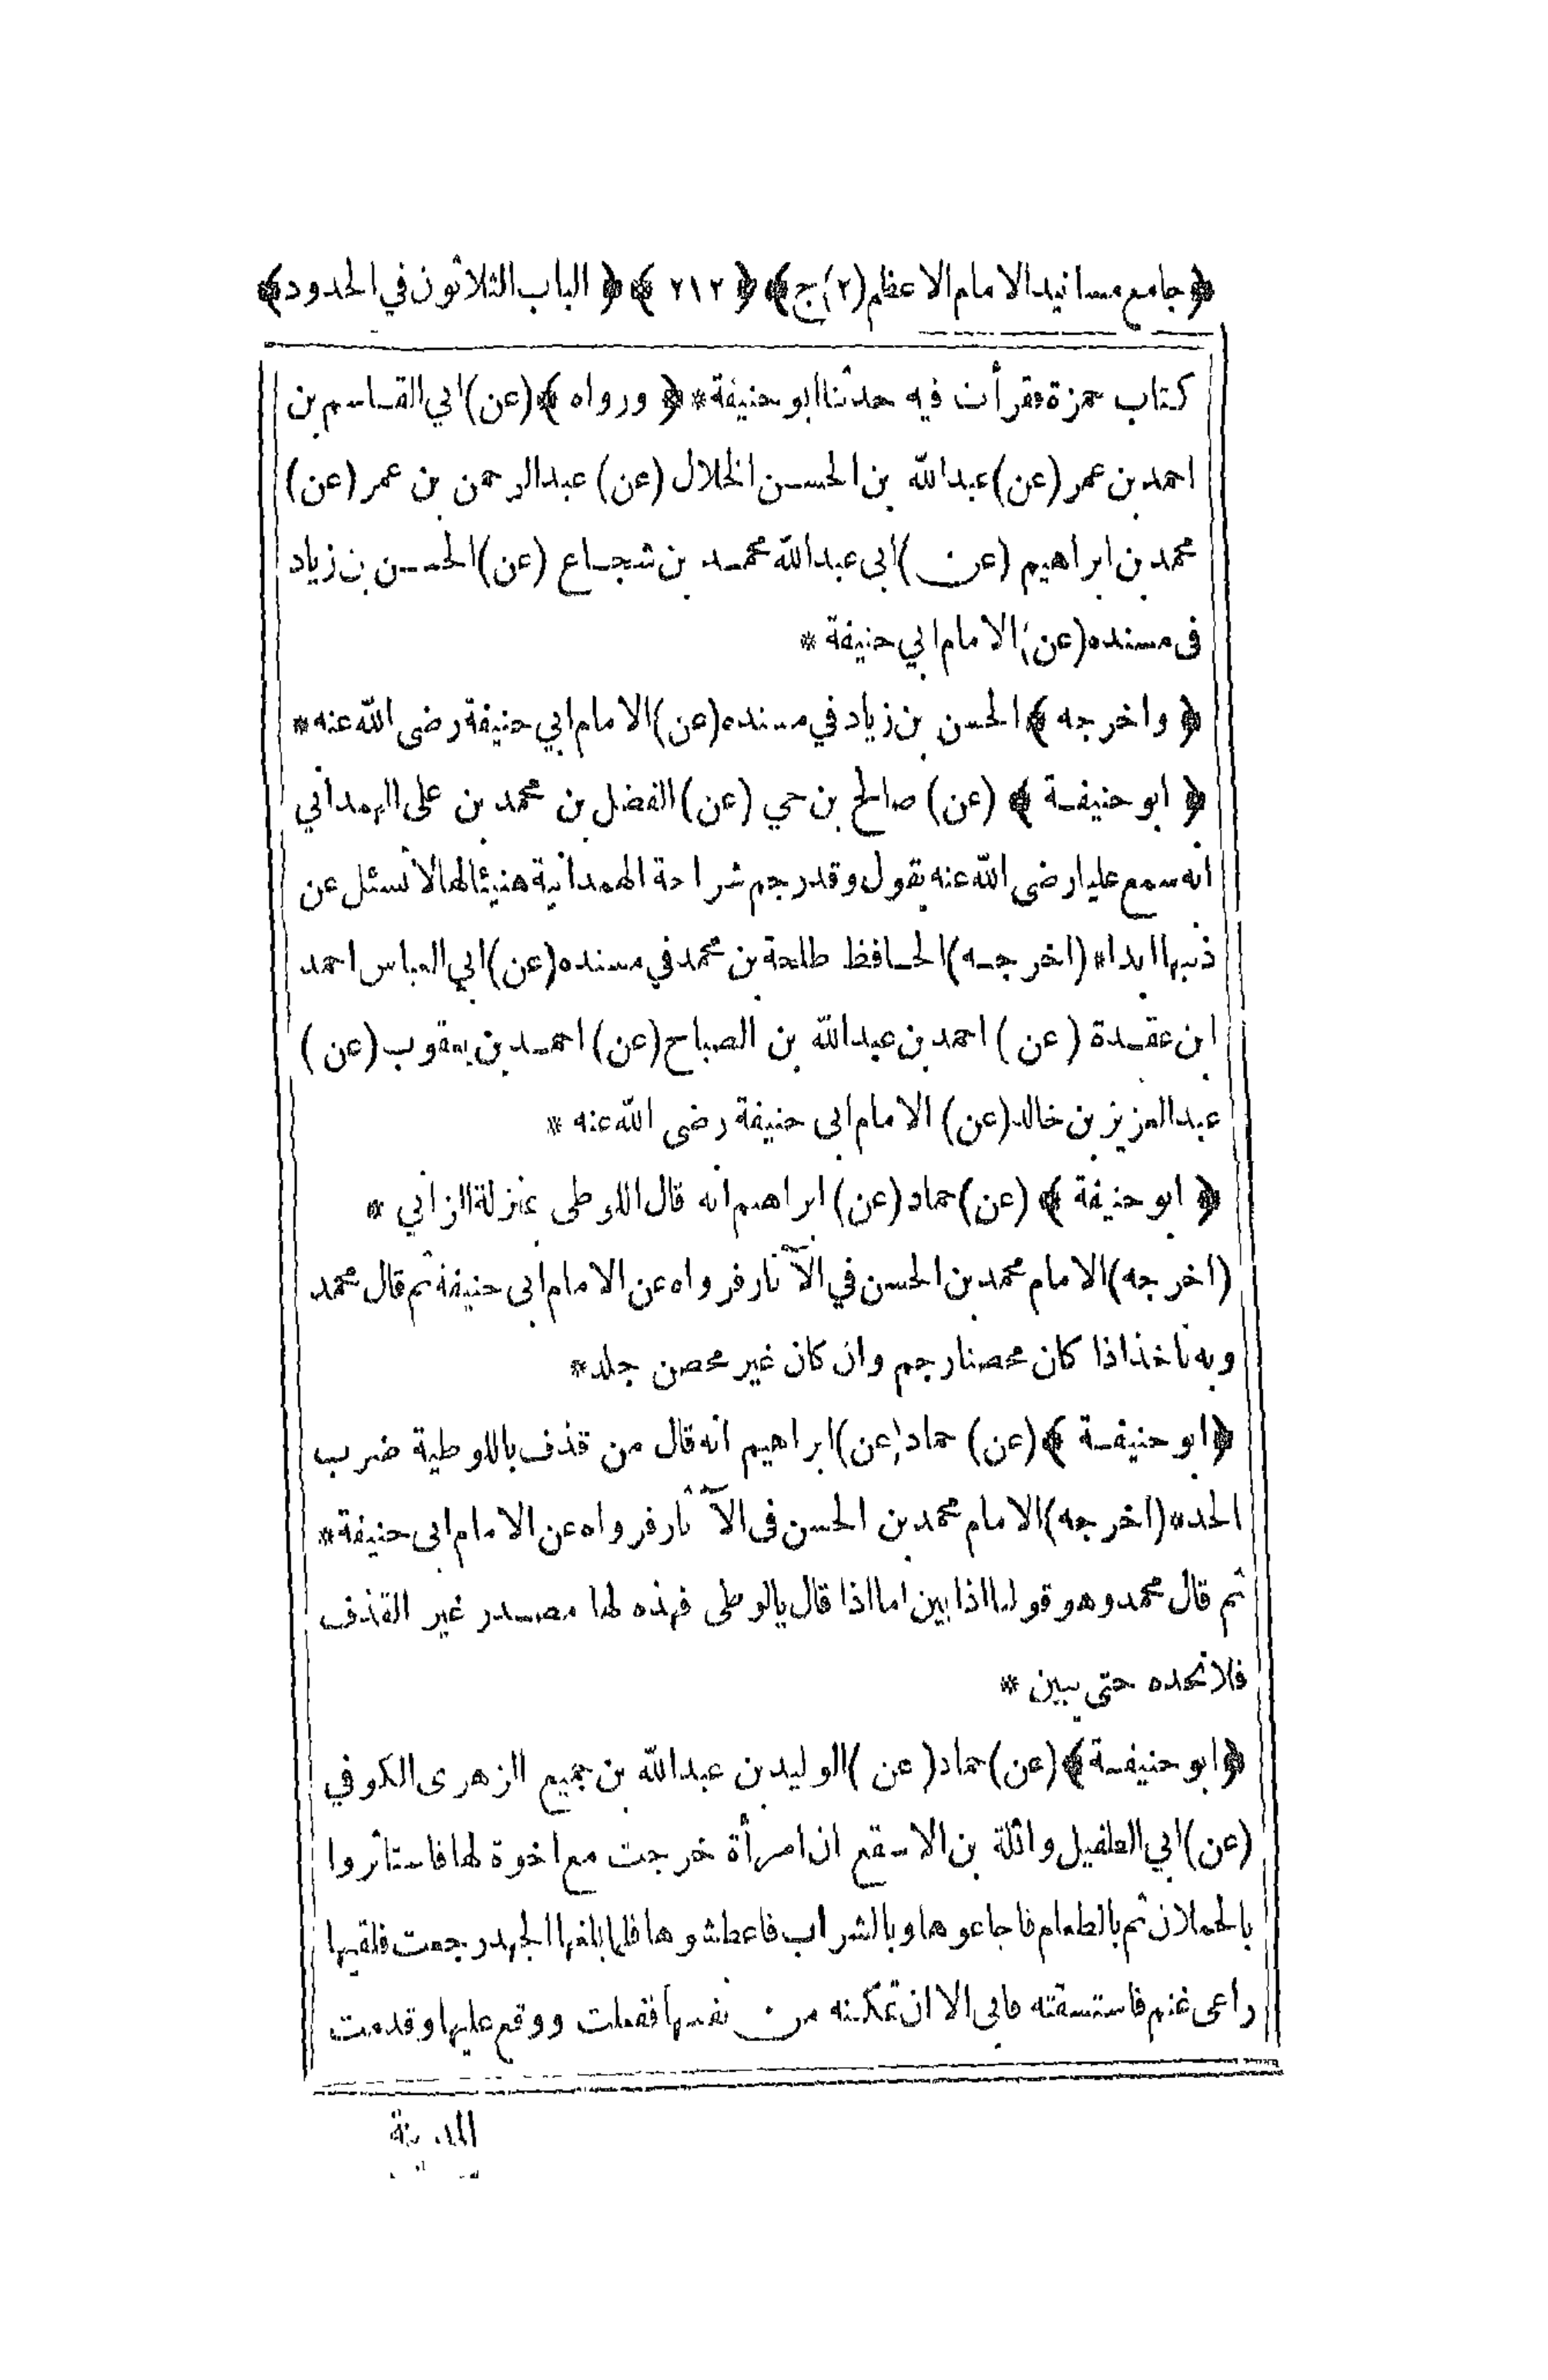 ﴿ جامع مسانيد الامام الاعظم (٢) ج﴾ ﴿ ٢١٢ ﴾ ﴿ الباب الثلاثون في الحدود﴾
كتاب حمزة فقرأت فيه حدثنا ابو حنيفة* ﴿ ورواه ﴾ (عن) ابي القاسم بن
احمد بن عمر (عن) عبد الله بن الحسن الخلال (عن) عبد الرحمن بن عمر (عن)
محمد بن ابراهيم (عن) ابى عبد الله محمد بن شجاع (عن) الحسن بن زياد
فى مسنده (عن) الامام ابي حنيفة *
﴿ واخرجه ﴾ الحسن بن زياد في مسنده (عن) الامام ابي حنيفة رضى الله عنه*
﴿ ابو حنيفة ﴾ (عن) صالح بن حي (عن) الفضل بن محمد بن على الهمداني
انه سمع عليا رضى الله عنه يقول وقد رجم شراحة الهمدانية هنيئا لها لا تسئل عن
ذنبها ابدا* (اخرجه) الحافظ طلحة بن محمد في مسنده (عن) ابي العباس احمد
ابن عقدة (عن) احمد بن عبد الله بن الصباح (عن) احمد بن يعقوب (عن)
عبد العزيز بن خالد (عن) الامام ابى حنيفة رضى الله عنه *
﴿ ابو حنيفة ﴾ (عن) حماد (عن) ابراهيم انه قال اللوطى بمنزلة الزاني *
(اخرجه) الامام محمد بن الحسن في الآثار فرواه عن الامام ابى حنيفة ثم قال محمد
وبه نأخذ اذا كان محصنا رجم وان كان غير محصن جلد*
﴿ ابو حنيفة ﴾ (عن) حماد (عن) ابراهيم انه قال من قذف باللوطية ضرب
الحد* (اخرجه) الامام محمد بن الحسن فى الآثار فرواه عن الامام ابى حنيفة*
ثم قال محمد وهو قولنا اذا بين اما اذا قال يالوطى فهذه لها مصدر غير القذف
فلا نحده حتى يبين *
﴿ ابو حنيفة ﴾ (عن) حماد (عن) الوليد بن عبد الله بن جميع الزهرى الكوفي
(عن) ابي الطفيل واثلة بن الاسقع ان امرأة خرجت مع اخوة لها فاستاثروا
بالحملان ثم بالطعام فاجاعوها وبالشراب فاعطشوها فلما بلغها الجهد رجعت فلقيها
راعى غنم فاستسقته فابى الا ان تمكنه من نفسها ففعلت ووقع عليها وقدمت
المدينة